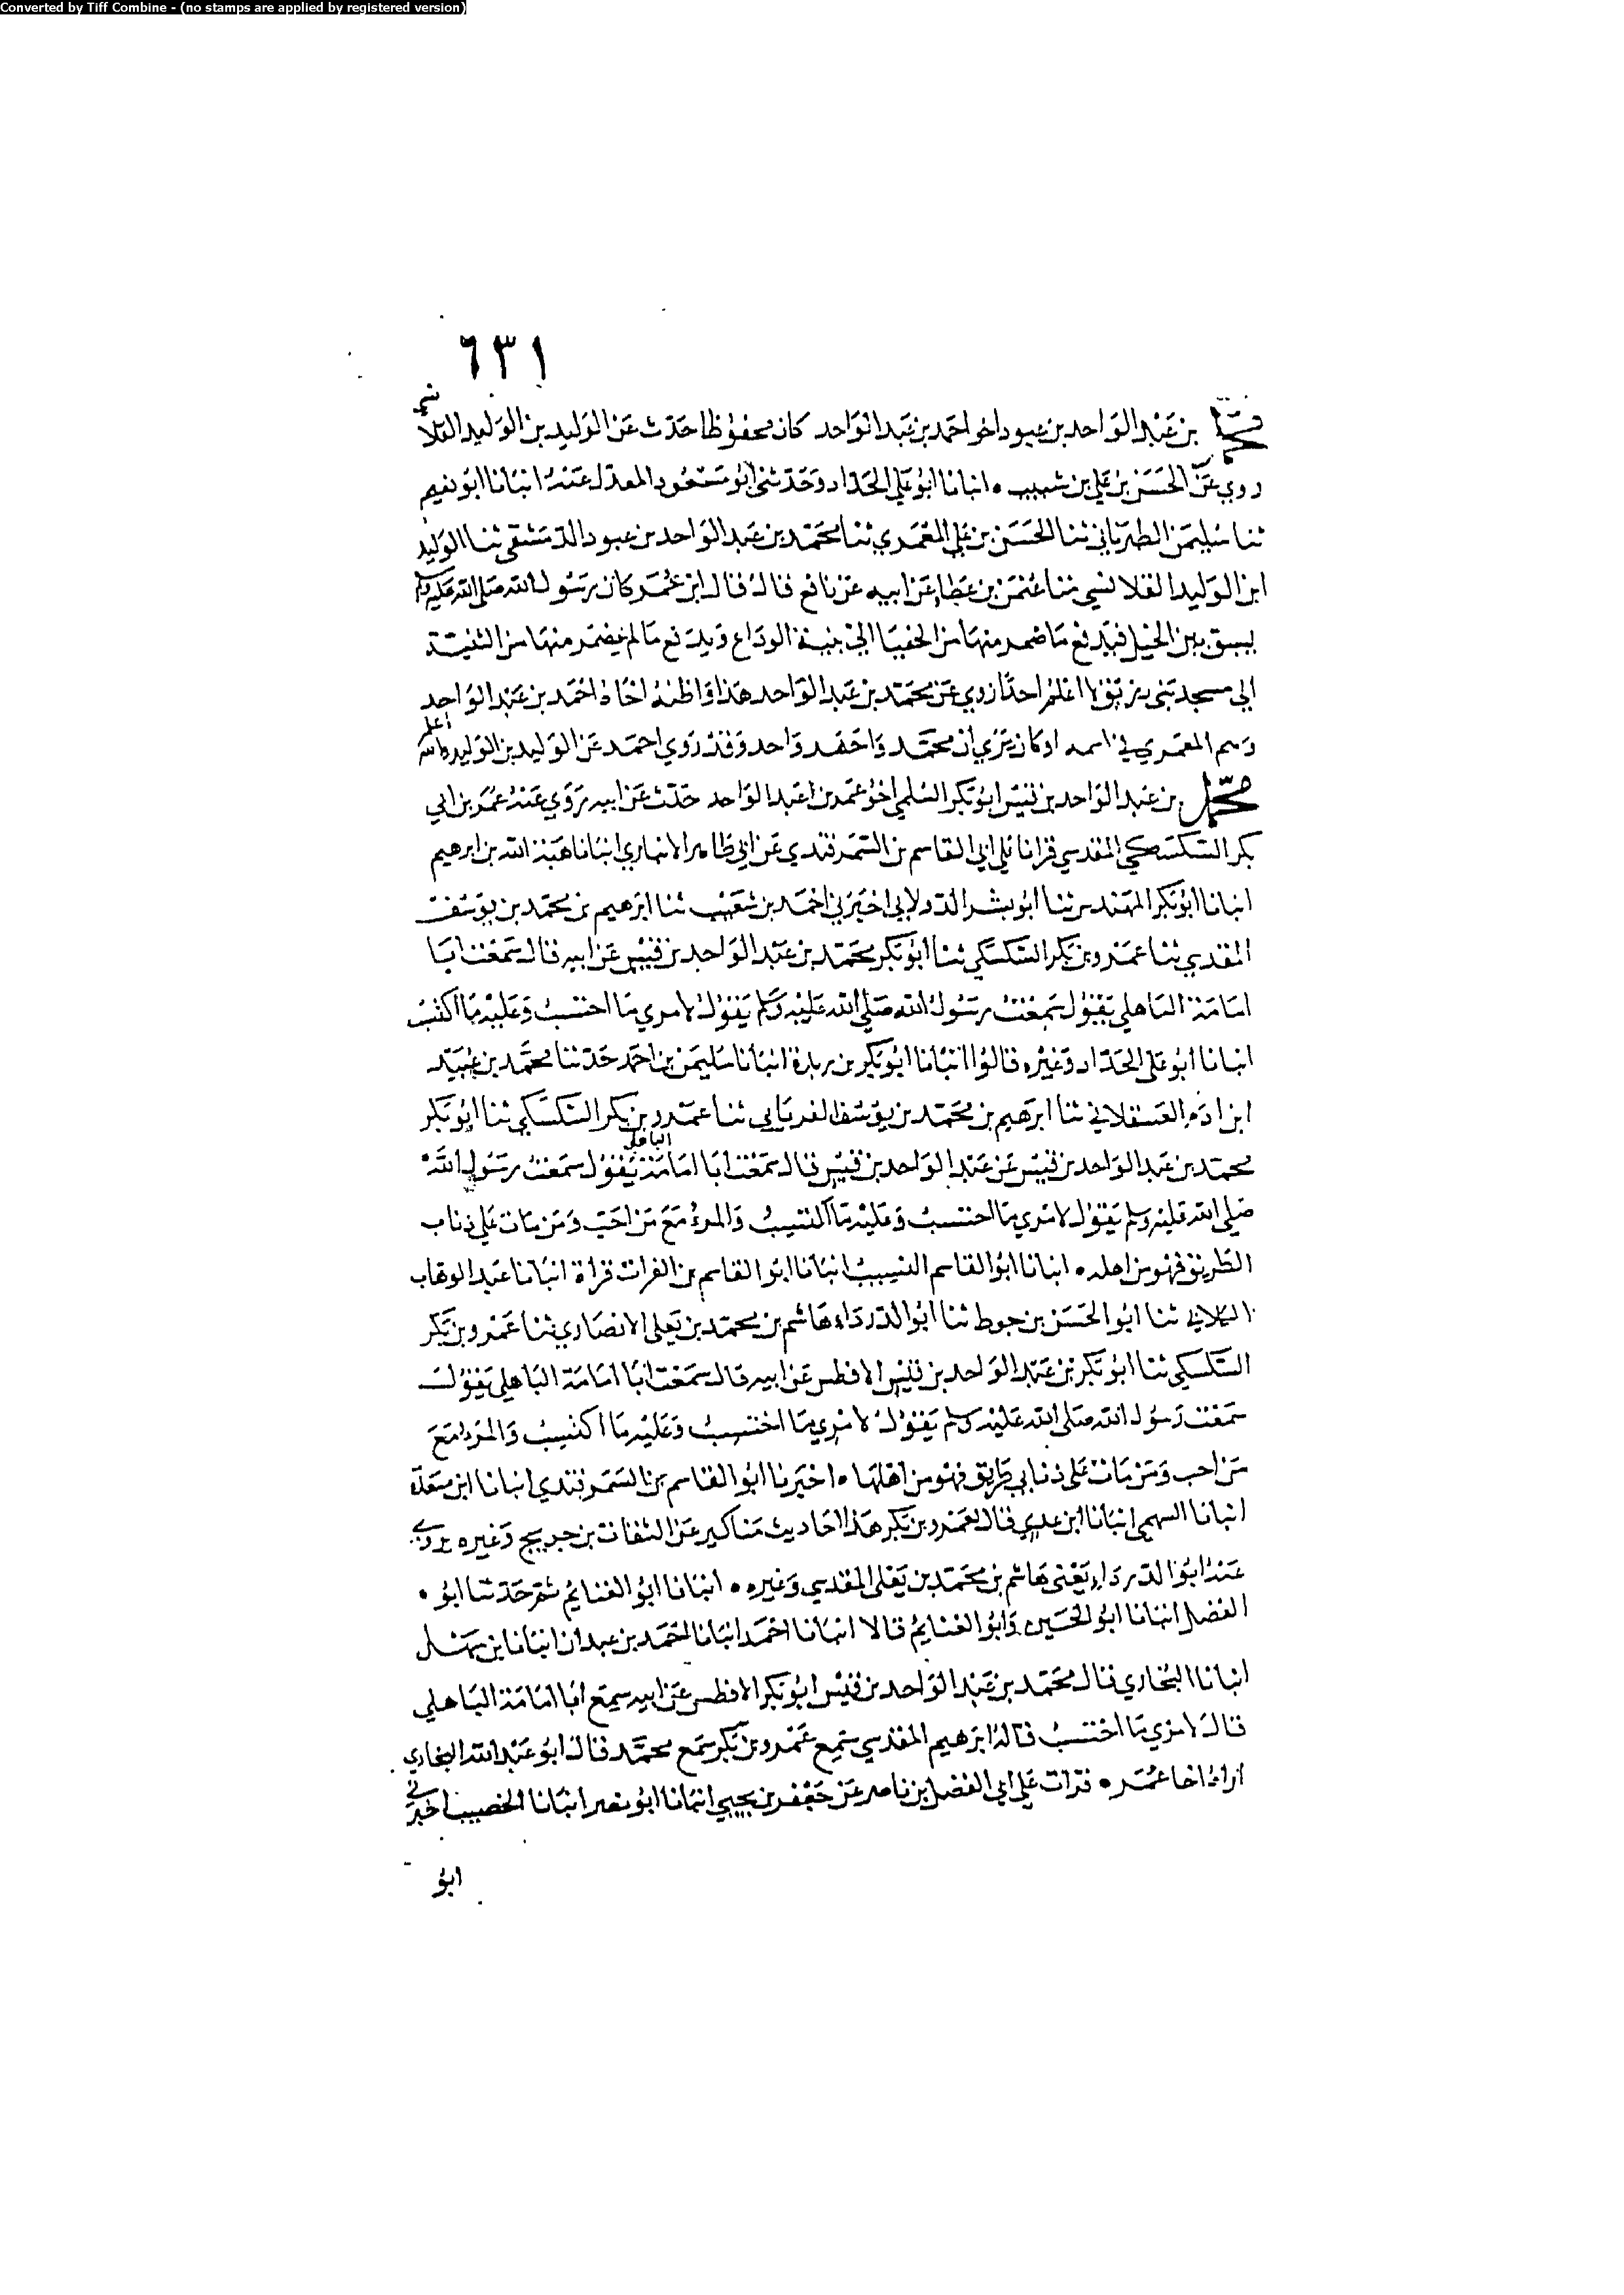 Converted by Tiff Combine - (no stamps are applied by registered version)
٦٣١
محمد بن عبد الواحد بن عبود اخو احمد بن عبد الواحد كان محفوظا حدث عن الوليد بن الوليد القلانسي
روي عن الحسن بن علي بن شبيب ه انبانا ابو علي الحداد وحدثني ابو مسعود المعدل عنه انبانا ابو نعيم
ثنا سليمن الطبراني ثنا الحسن بن علي المعمري ثنا محمد بن عبد الواحد بن عبود الدمشقي ثنا الوليد
ابن الوليد القلانسي ثنا عثمن بن عطا عن ابيه عن نافع قال قال ابن عمر كان رسول الله صلى الله عليه وسلم
يسبق بين الخيل فيدفع ما ضمر منها من الحفيا الي ثنية الوداع ويدفع ما لم يضمر منها من الثنية
الي مسجد بني زريق لا اعلم احدا روي عن محمد بن عبد الواحد هذا واظنه اخاه احمد بن عبد الواحد
وهم المعمري في اسمه او كان يري ان محمد واحمد واحد وقد روي احمد عن الوليد بن الوليد والله اعلم
محمد بن عبد الواحد بن قيس ابو بكر السلمي اخو عمر بن عبد الواحد حدث عن ابيه روي عنه عمر بن ابي
بكر السكسكي المقدسي قرانا علي ابي القاسم بن السمرقندي عن ابي طاهر الانباري انبانا هبة الله بن ابرهيم
انبانا ابو بكر المهندس ثنا ابو بشر الدولابي اخبرني احمد بن شعيب ثنا ابرهيم بن محمد بن يوسف
المقدسي ثنا عمرو بن بكر السكسكي ثنا ابو بكر محمد بن عبد الواحد بن قيس عن ابيه قال سمعت ابا
امامة الباهلي يقول سمعت رسول الله صلى الله عليه وسلم يقول لامري ما احتسب وعليه ما اكتسب
انبانا ابو علي الحداد وغيره قالوا انبانا ابو بكر بن ريذة انبانا سليمن بن احمد حدثنا محمد بن عبيد
ابن ادم العسقلاني ثنا ابرهيم بن محمد بن يوسف الفريابي ثنا عمرو بن بكر السكسكي ثنا ابو بكر
محمد بن عبد الواحد بن قيس عن عبد الواحد بن قيس قال سمعت ابا امامة الباهلي يقول سمعت رسول الله
صلى الله عليه وسلم يقول لامري ما احتسب وعليه ما اكتسب والمرء مع من احب ومن مات علي ذناب
الطريق فهو من اهله ه انبانا ابو القاسم النسيب انبانا ابو القاسم بن الفرات قراة انبانا عبد الوهاب
الكلابي ثنا ابو الحسن بن جوصا ثنا ابو الدرداء هاشم بن محمد بن يعلي الانصاري ثنا عمرو بن بكر
السكسكي ثنا ابو بكر بن عبد الواحد بن قيس الافطس عن ابيه قال سمعت ابا امامة الباهلي يقول
سمعت رسول الله صلى الله عليه وسلم يقول لامري ما احتسب وعليه ما اكتسب والمرء مع
من احب ومن مات علي ذنابي طريق فهو من اهلها ه اخبرنا ابو القاسم بن السمرقندي انبانا ابن مسعدة
انبانا السهمي انبانا ابن عدي قال لعمرو بن بكر هذا احاديث مناكير عن الثقات بن جريج وغيره يروي
عنه ابو الدرداء يعني هاشم بن محمد بن يعلي المقدسي وغيره ه انبانا ابو الغنايم ثم حدثنا ابو
الفضل انبانا ابو الحسين وابو الغنايم قالا انبانا احمد انبانا احمد بن عبدان انبانا بن سهل
انبانا البخاري قال محمد بن عبد الواحد بن قيس ابو بكر الافطس عن ابيه سمع ابا امامة الباهلي
قال لامري ما احتسب قاله ابرهيم المقدسي سمع عمرو بن بكر سمع محمد قال ابو عبد الله البخاري
اراه اخا عمر ه قرات علي ابي الفضل بن ناصر عن جعفر بن يحيي انبانا ابو نصر انبانا الخصيب اخبرني
ابو